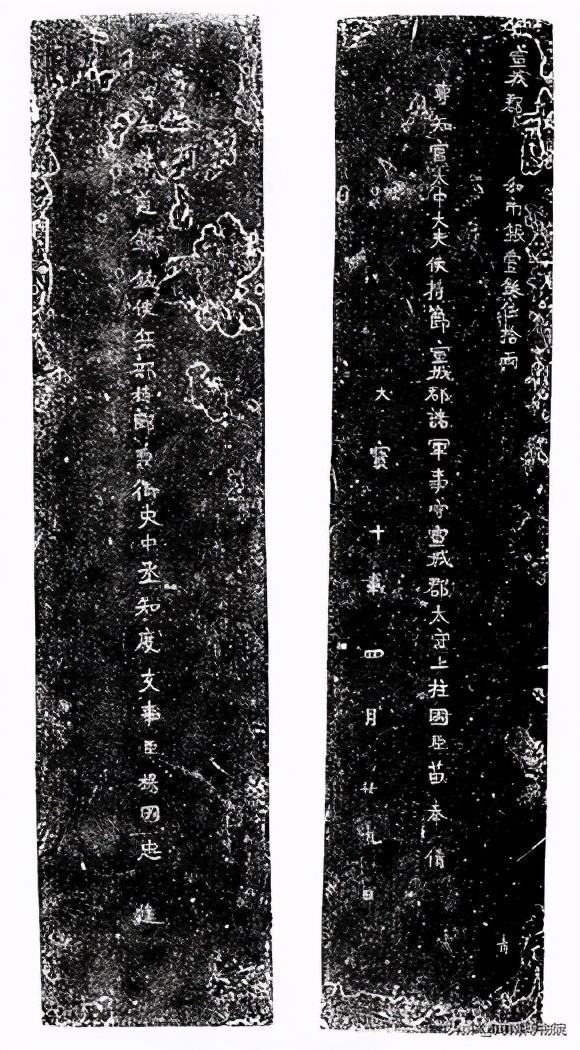 宣城郡 和市銀壹鋌伍拾兩
專知官大中大夫使持節宣城郡諸軍事守宣城郡太守上柱國臣苗奉倩
天寶十載四月廿九日
專知諸道鑄錢使兵部侍郎兼御史中丞知度支事臣楊國忠 進